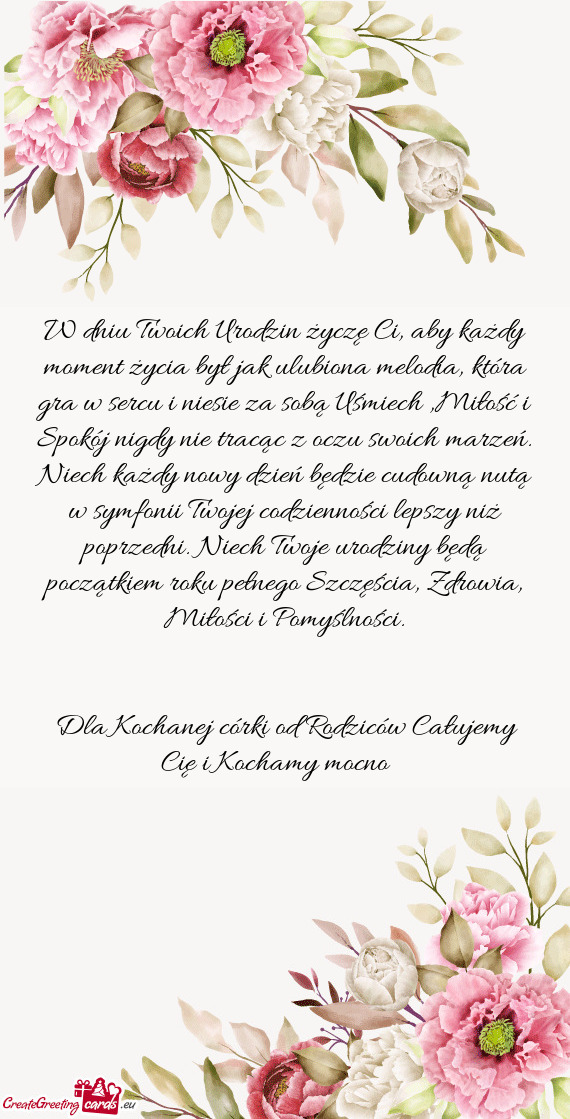 W dniu Twoich Urodzin życzę Ci, aby każdy
moment życia był jak ulubiona melodia, która
gra w sercu i niesie za sobą Uśmiech ,Miłość i
Spokój nigdy nie tracąc z oczu swoich marzeń.
Niech każdy nowy dzień będzie cudowną nutą
w symfonii Twojej codzienności lepszy niż
poprzedni. Niech Twoje urodziny będą
początkiem roku pełnego Szczęścia, Zdrowia,
Miłości i Pomyślności.
Dla Kochanej córki od Rodziców Całujemy
Cię i Kochamy mocno
CreateGreeting cards .eu